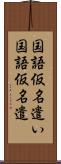 国語仮名遣い
国語仮名遣